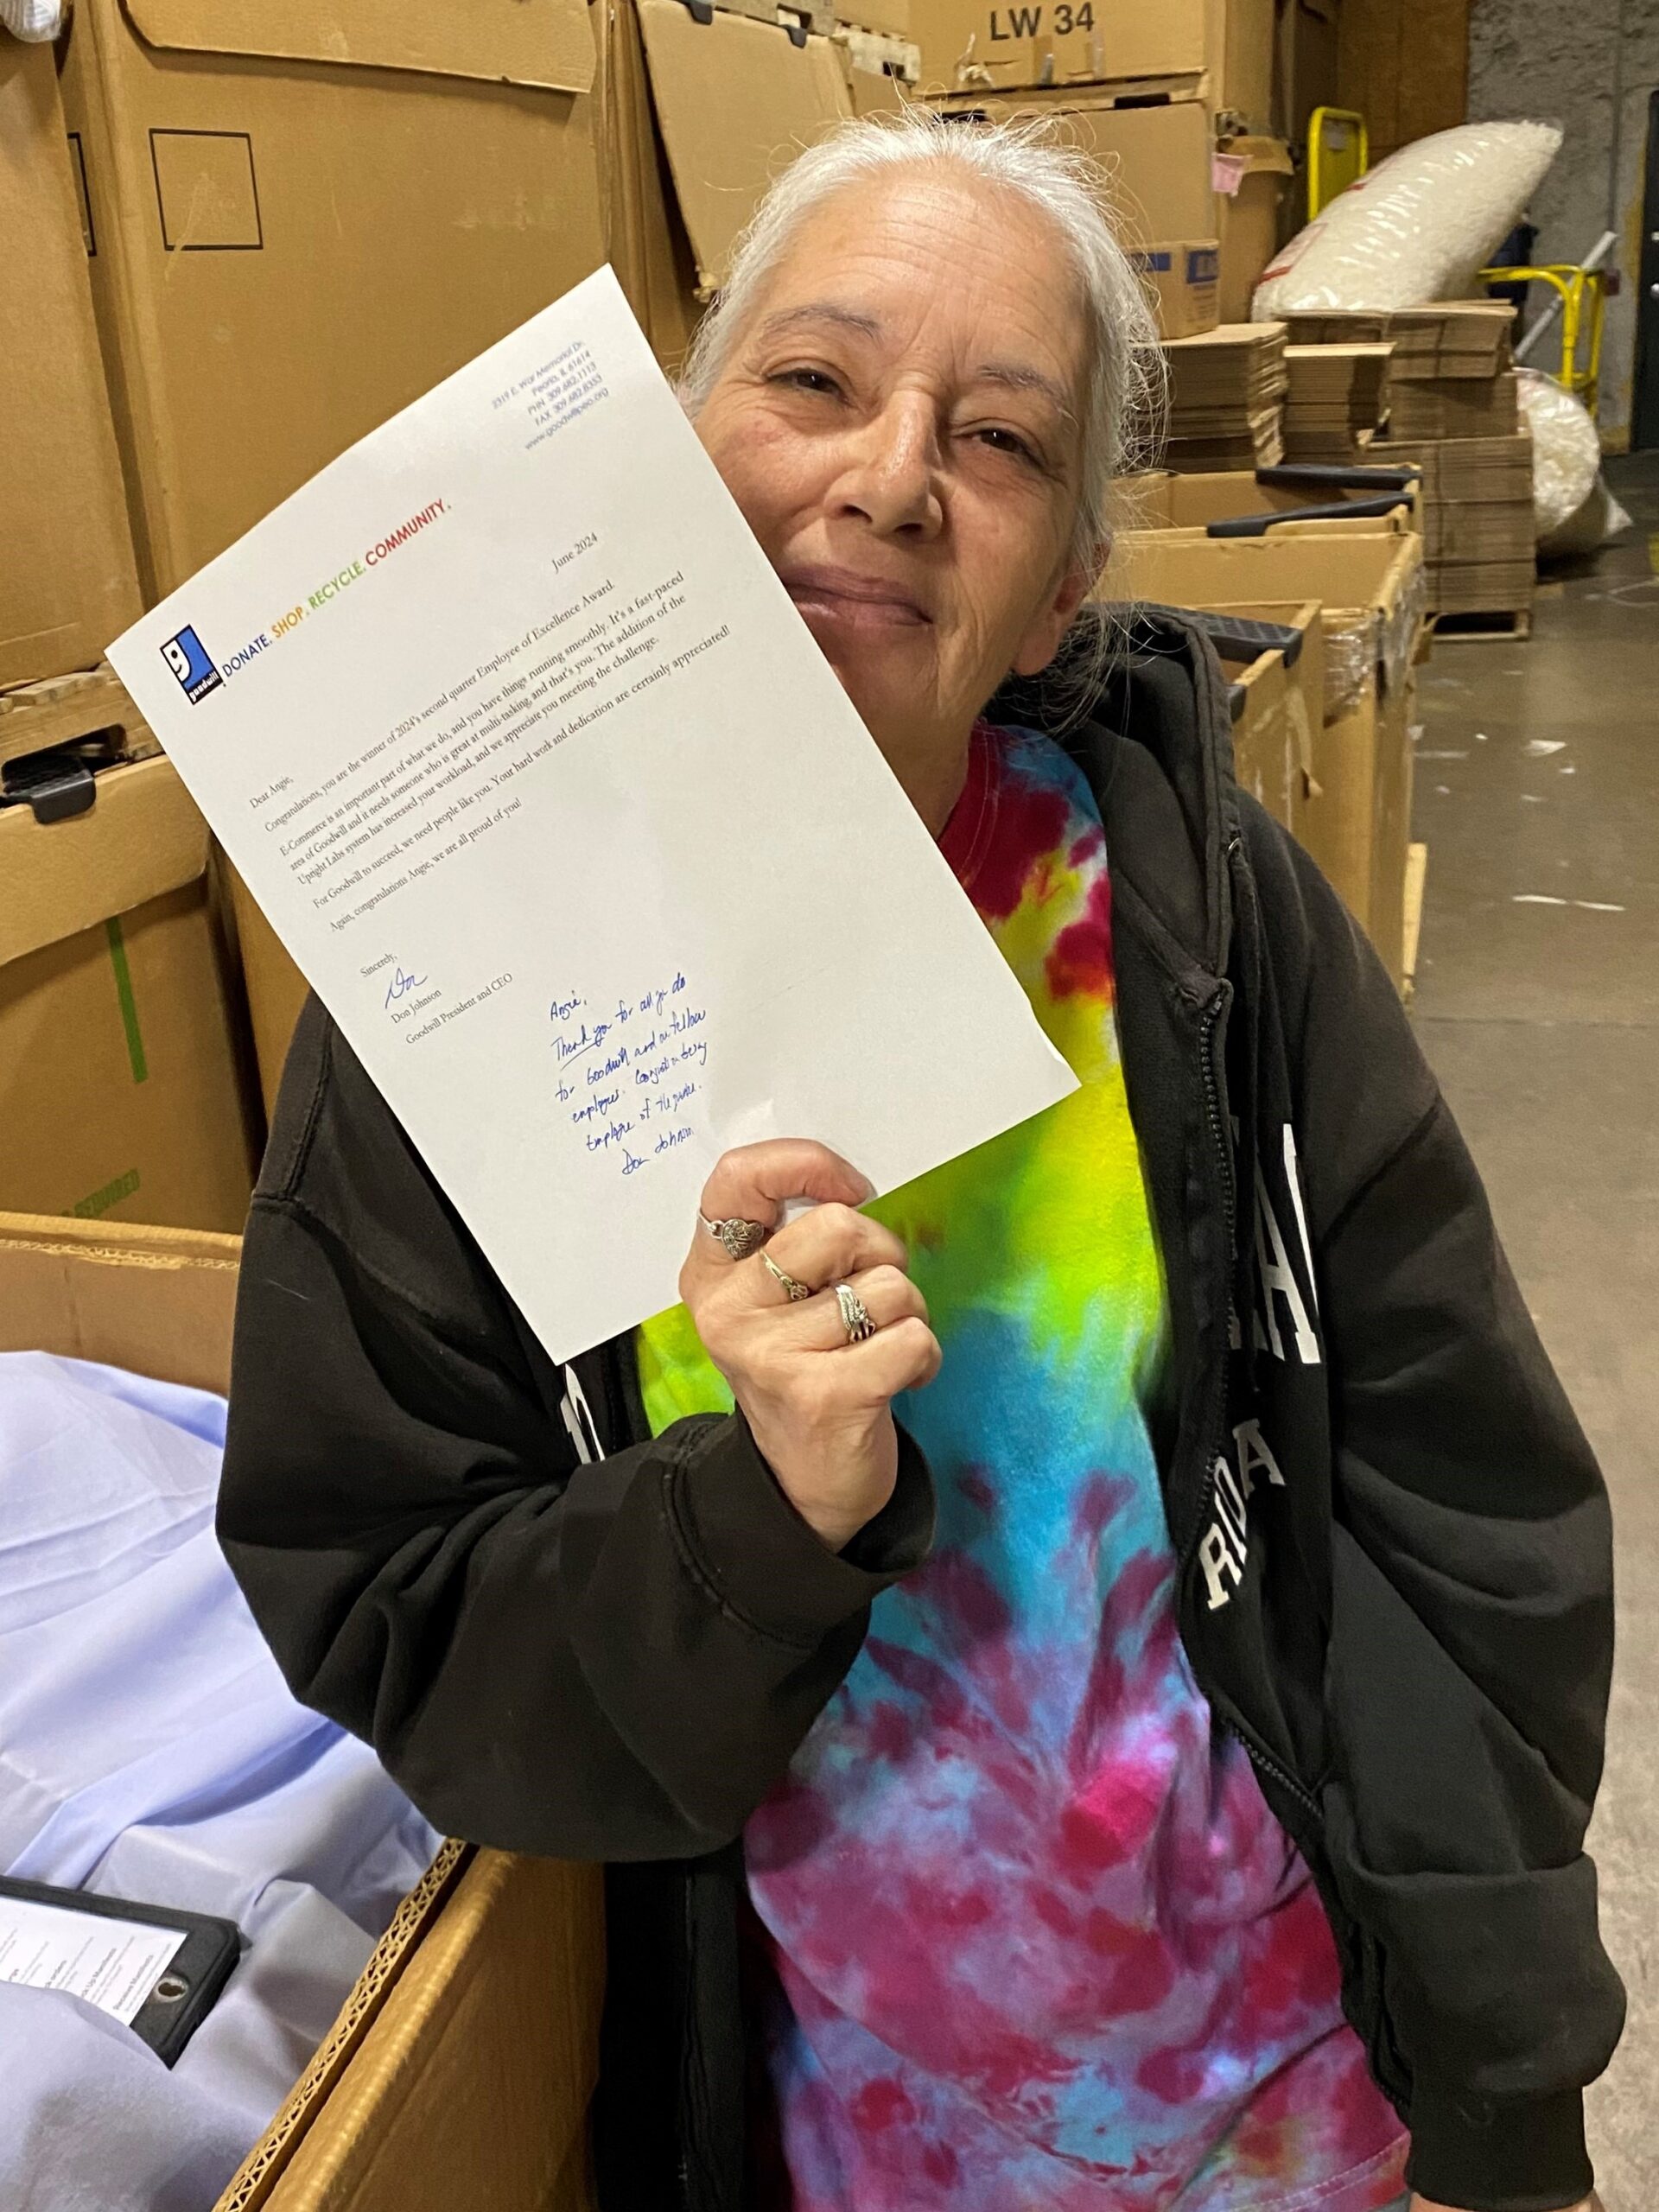 LW 34
2319 E. War Memorial Dr.
Peoria, IL 61614
PHN 309.682.1113
FAX 309.682.8353
www.goodwillpeo.org
goodwill
DONATE. SHOP. RECYCLE. COMMUNITY.
June 2024
Dear Angie,
Congratulations, you are the winner of 2024's second quarter Employee of Excellence Award.
E-Commerce is an important part of what we do, and you have things running smoothly. It's a fast-paced
area of Goodwill and it needs someone who is great at multi-tasking, and that's you. The addition of the
Upright Labs system has increased your workload, and we appreciate you meeting the challenge.
For Goodwill to succeed, we need people like you. Your hard work and dedication are certainly appreciated!
Again, congratulations Angie, we are all proud of you!
Sincerely,
Don
Don Johnson
Goodwill President and CEO
Angie,
Thank you for all you do
for Goodwill and our fellow
employees. Congrats on being
Employee of the quarter.
Don Johnson
REQUIRED
RIDA